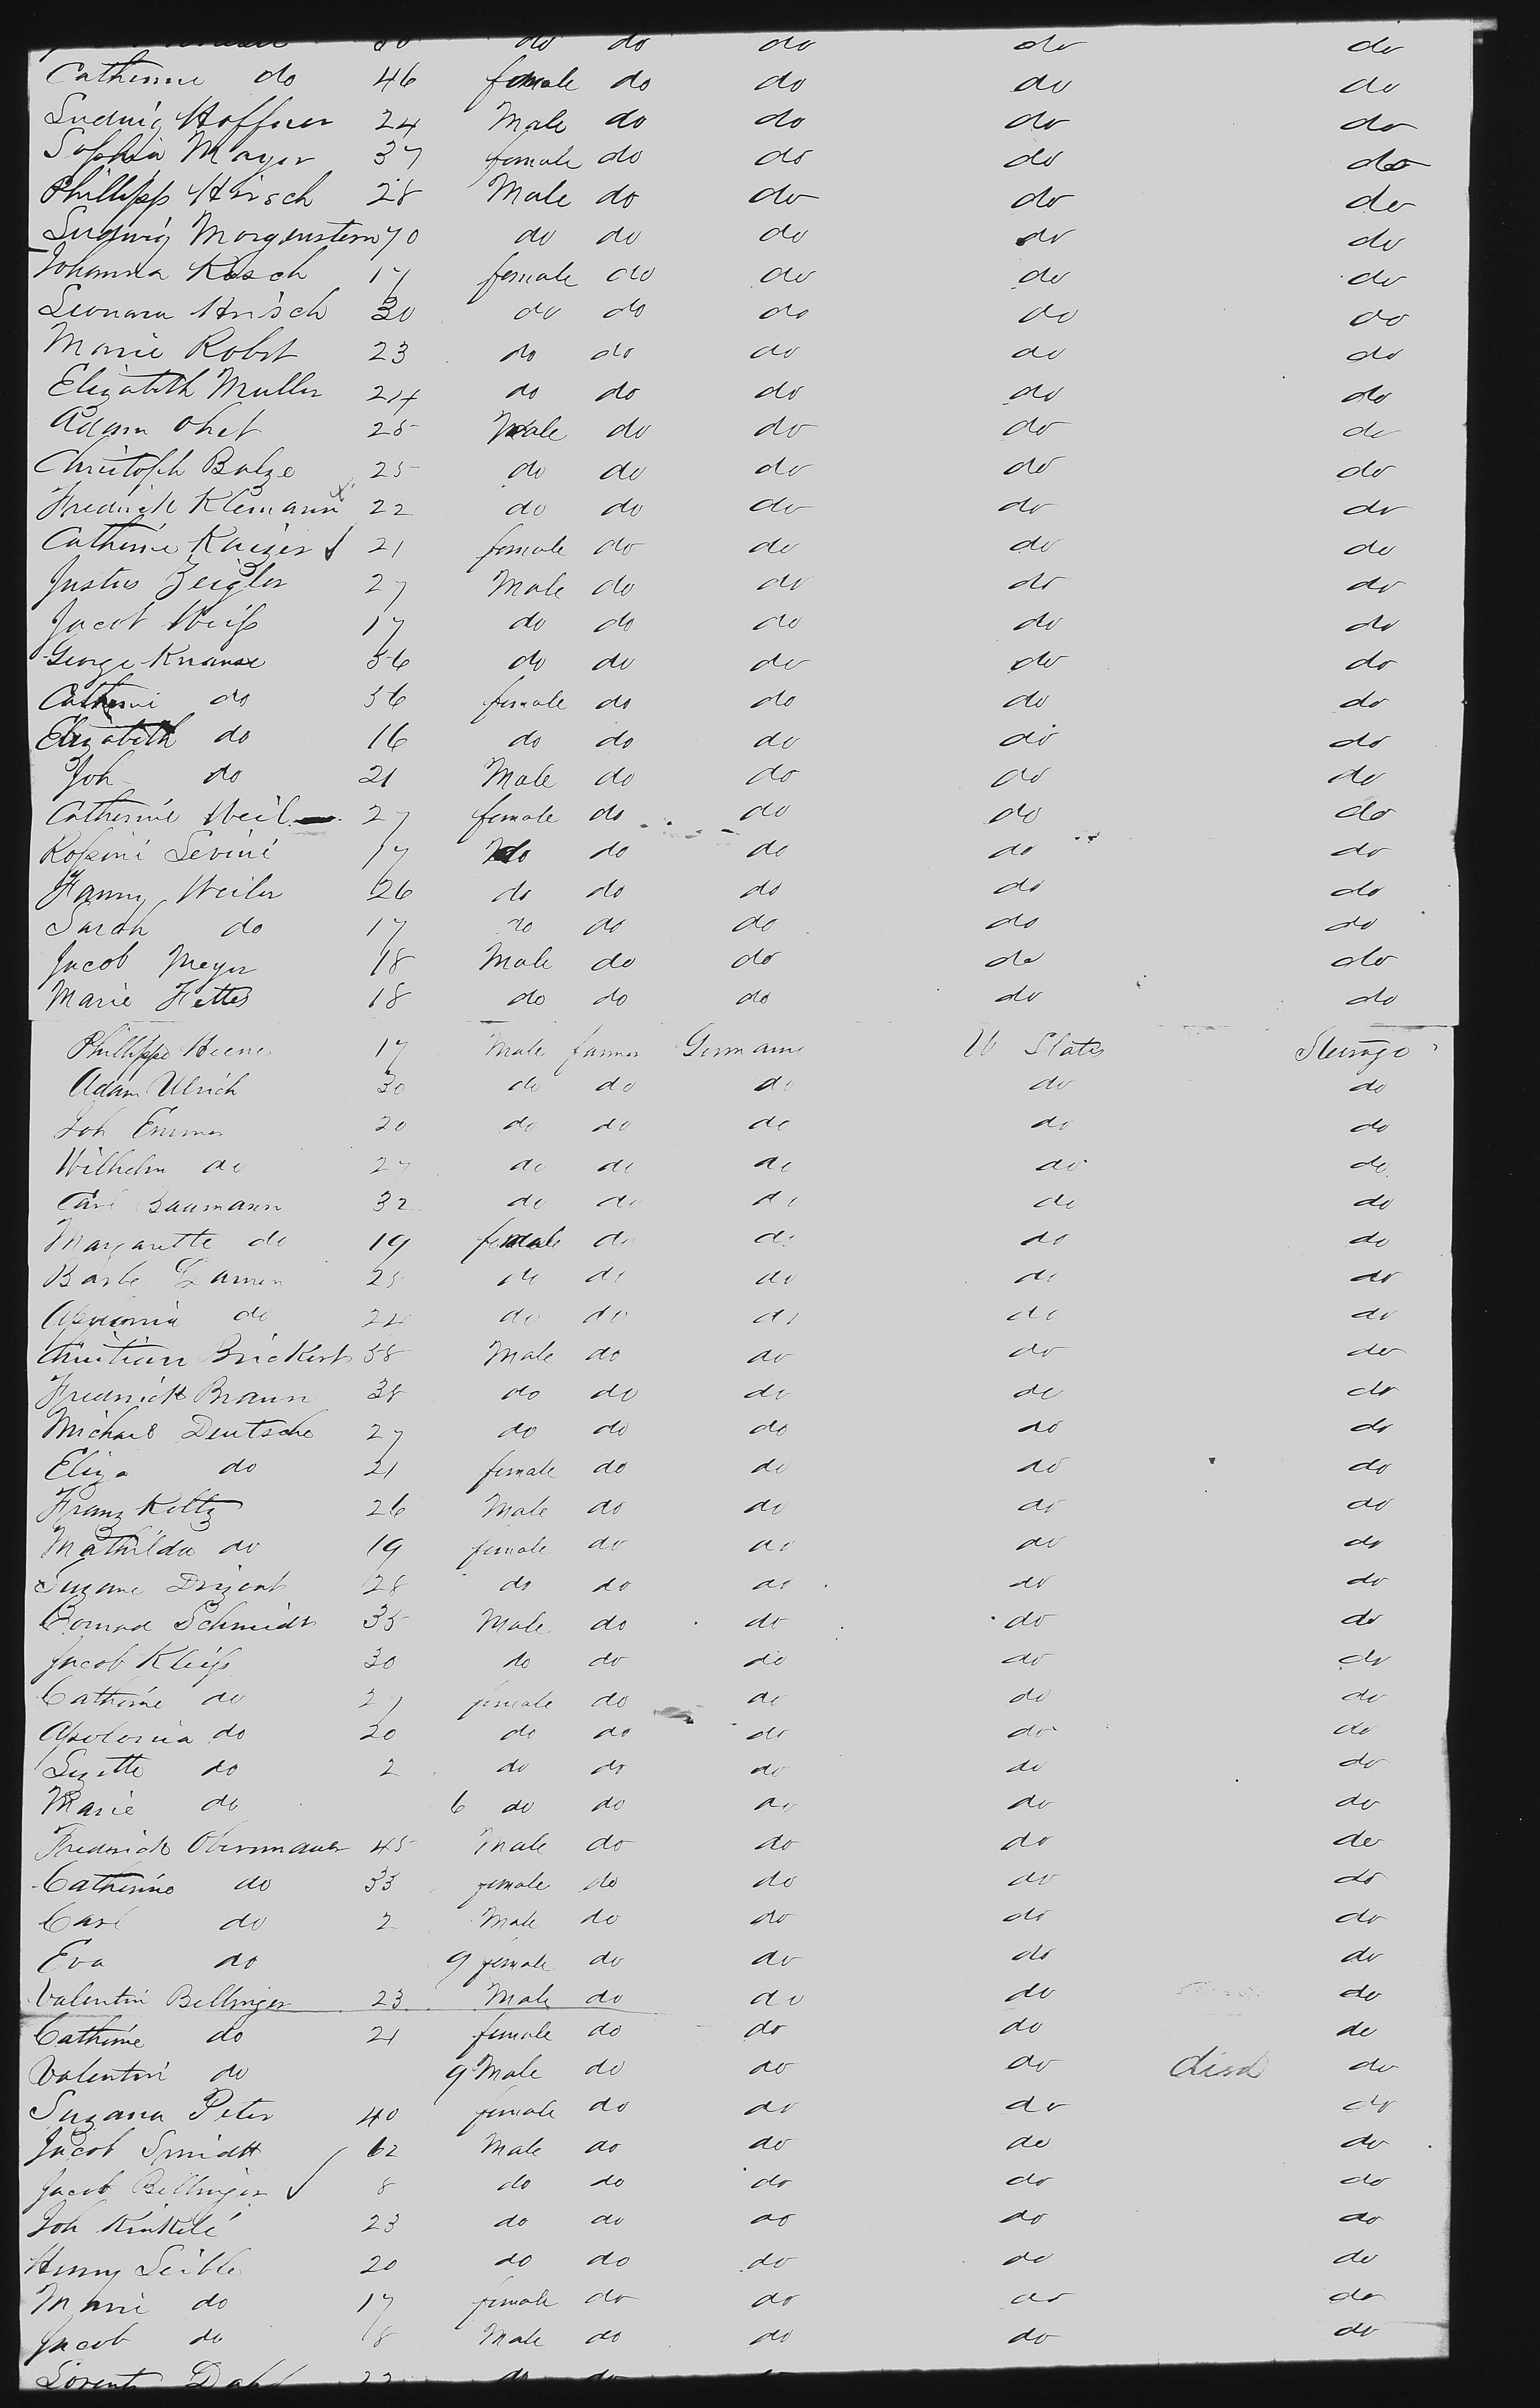 do do do do do
Catherine do 46 female do do do do
Ludwig Hoffner 24 Male do do do do
Sophia Mayer 37 female do do do do
Phillipp Hirsch 28 Male do do do do
Ludwig Morgenstern 70 do do do do do
Johanna Kosch 17 female do do do do
Leonara Hirsch 30 do do do do do
Marie Robst 23 do do do do do
Elizabeth Muller 24 do do do do do
Adam Ohet 25 Male do do do do
Christoph Balze 25 do do do do do
Fredrick Klemann x 22 do do do do do
Catherine Kaizer 21 female do do do do
Justus Zeigler 27 Male do do do do
Jacob Weiß 17 do do do do do
George Krause 56 do do do do do
Catherine do 56 female do do do do
Elizabeth do 16 do do do do do
Joh do 21 Male do do do do
Catherine Weil 27 female do do do do
Roßini Levini 17 do do do do do
Fanny Weiler 26 do do do do do
Sarah do 17 do do do do do
Jacob Meyer 18 Male do do do do
Marie Fettes 18 do do do do do
Phillippe 17 Male farmer Germany U States Steerage
Adam Ulrich 30 do do do do do
Joh Emmer 20 do do do do do
Wilhelm do 27 do do do do do
Carl Baumann 32 do do do do do
Margarette do 19 female do do do do
Barbe 25 do do do do do
Apolonia do 24 do do do do do
Christian Brickert 38 Male do do do do
Fredrick Braun 38 do do do do do
Michael Deutsche 27 do do do do do
Eliza do 21 female do do do do
Franz Keltz 26 Male do do do do
Mathilda do 19 female do do do do
Suzane 28 do do do do do
Conrad Schmidt 35 Male do do do do
Jacob Kleiß 30 do do do do do
Catherine do 27 female do do do do
Apolonia do 20 do do do do do
Lizette do 2 do do do do do
Marie do 6 do do do do do
Fredrick Obermauer 45 Male do do do do
Catherine do 33 female do do do do
Carl do 2 Male do do do do
Eva do 9 female do do do do
Valentin Bellinger 23 Male do do do do
Catherine do 21 female do do do do
Valentin do 9 Male do do do died do
Suzana Peter 40 female do do do do
Jacob Smidtt 62 Male do do do do
Jacob Bellinger 8 do do do do do
Joh Kinkele 23 do do do do do
Henry Leible 20 do do do do do
Marie do 17 female do do do do
Jacob do 18 Male do do do do
Lorentz Dahl 22 do do